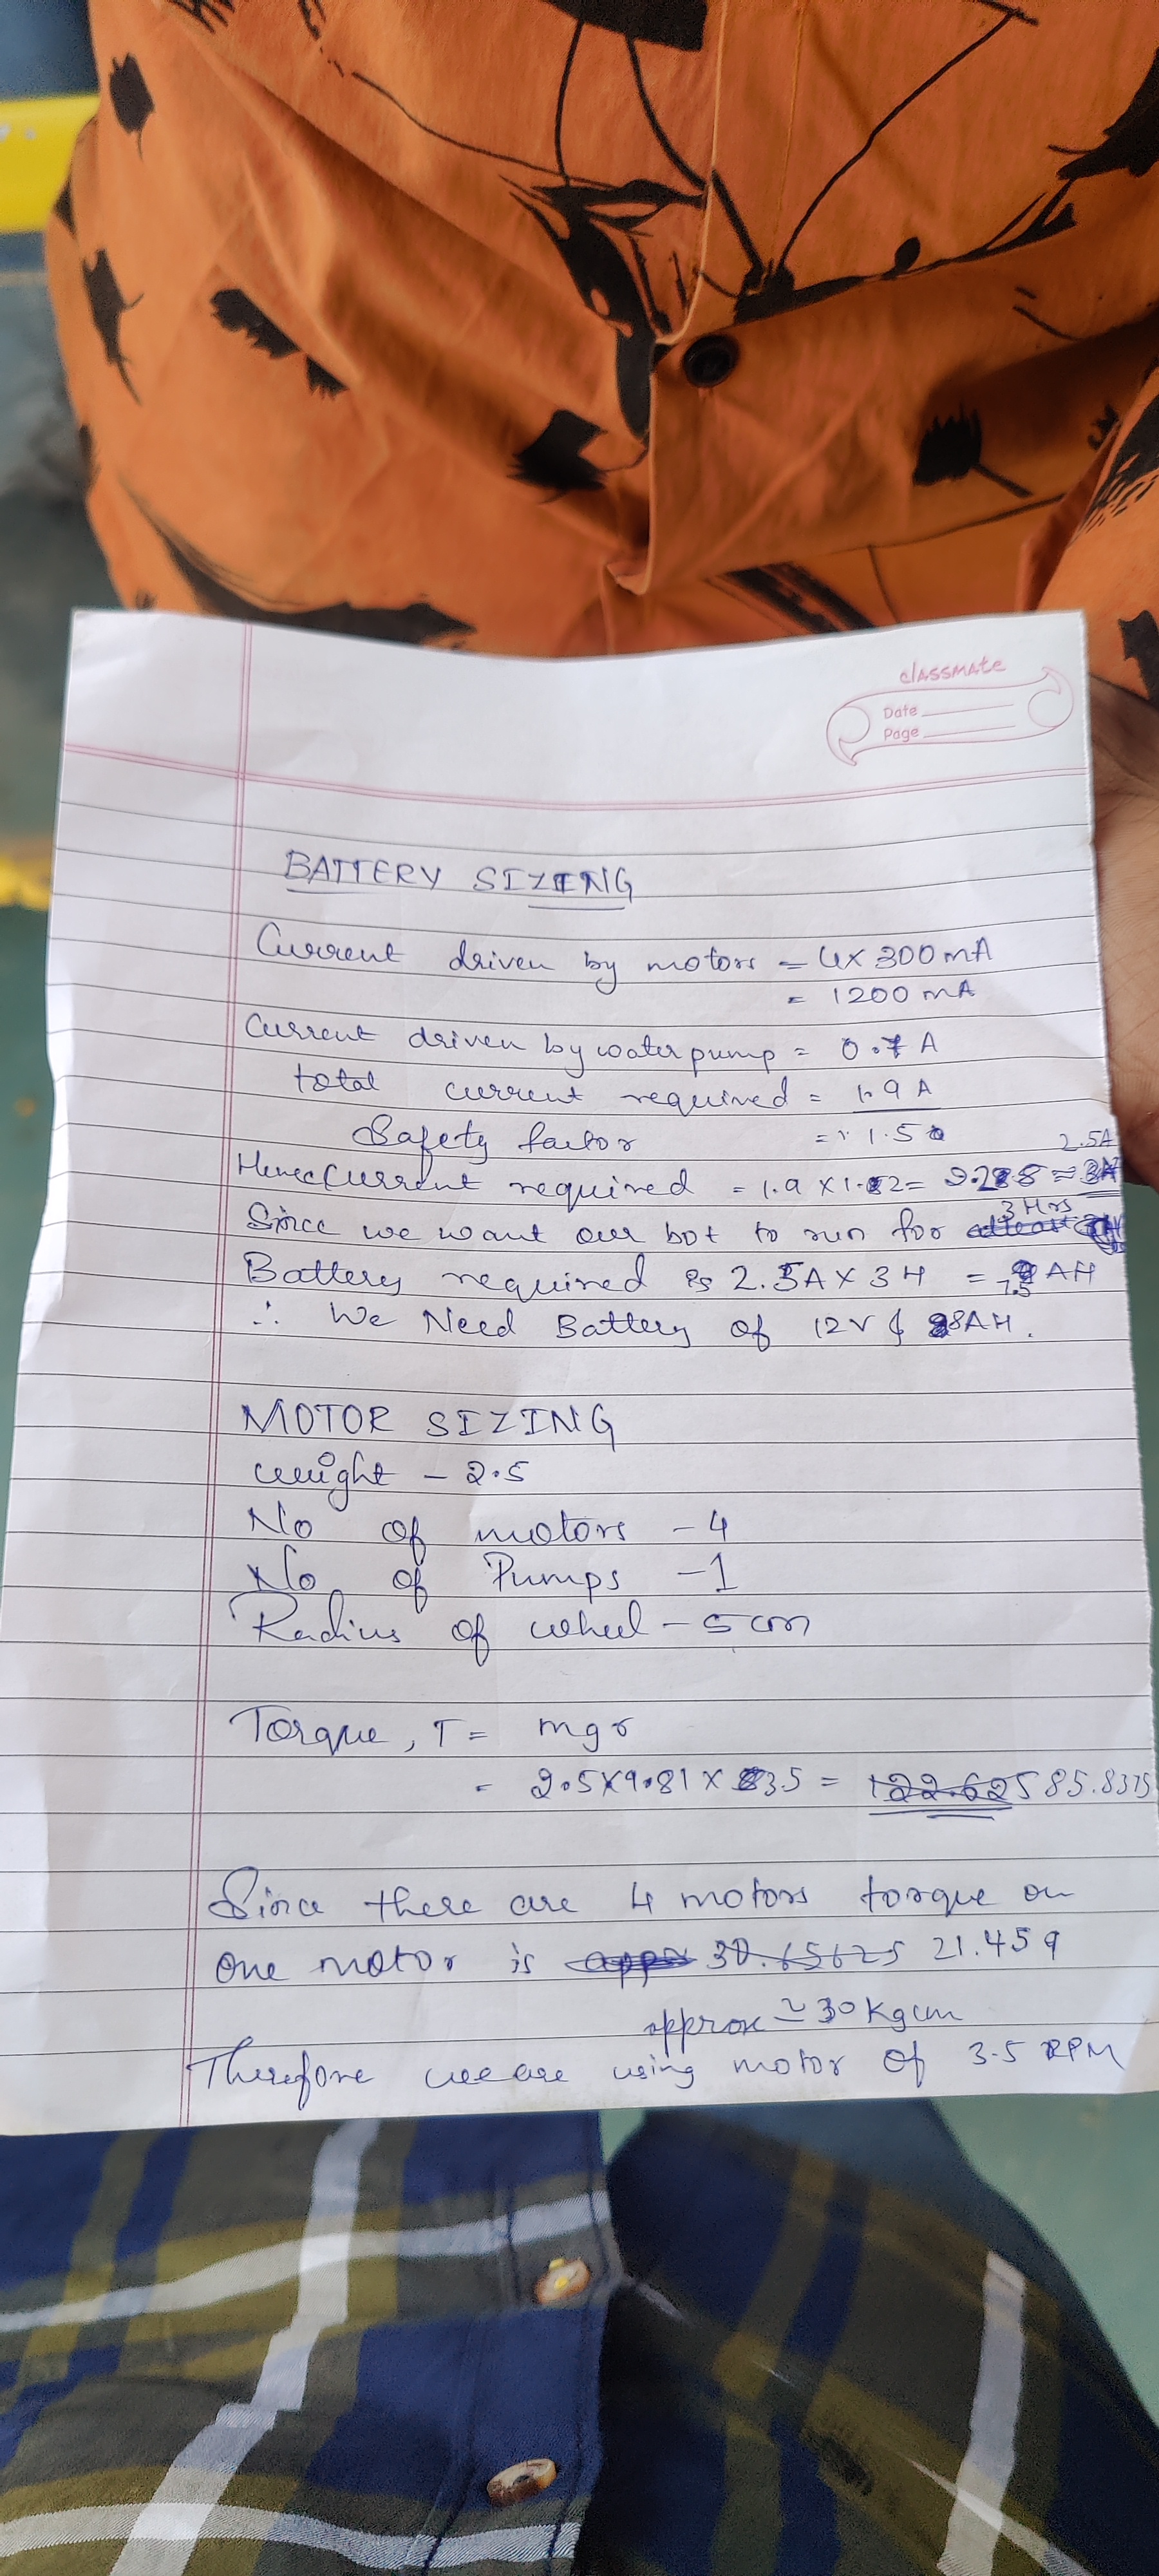 classmate
Date
Page
BATTERY SIZING
Current driven by motors = 4x 300mA
= 1200 mA
Current driven by water pump = 0.7 A
total current required = 1.9 A
Safety factor = 1.5
2.5A
Hence Current required = 1.9 X 1.2 = 2.28
3 Hrs
Since we want our bot to run for
Battery required is 2.5A X 3 H = 7.5 AH
∴ We Need Battery of 12V & 8AH.
MOTOR SIZING
weight - 2.5
No of motors - 4
No of Pumps - 1
Radius of wheel - 5 cm
Torque, T = mgr
= 2.5X9.81 X 3.5 = 122.625 85.8375
Since there are 4 motors torque on
one motor is 30.65625 21.459
approx ≃ 30 Kgcm
Therefore we are using motor of 3.5 RPM